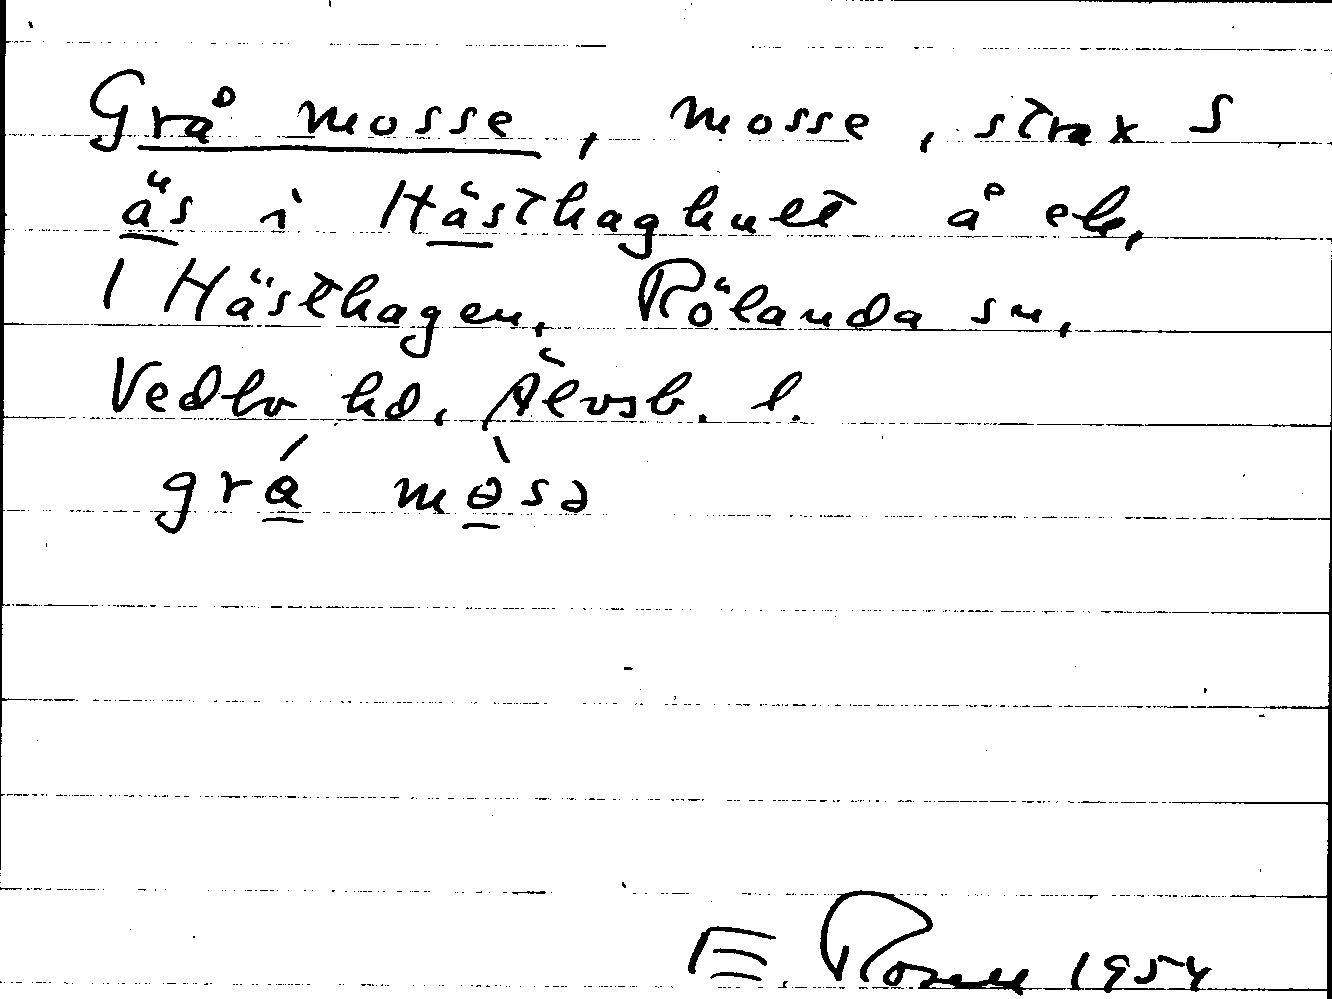 Grå mosse, mosse, strax S
äs i Hästhaghult å ek,
1 Hästhagen, Rölanda sn,
Vedbo hd, Älvsb. l.
grá mòsə
E. Rosell 1954